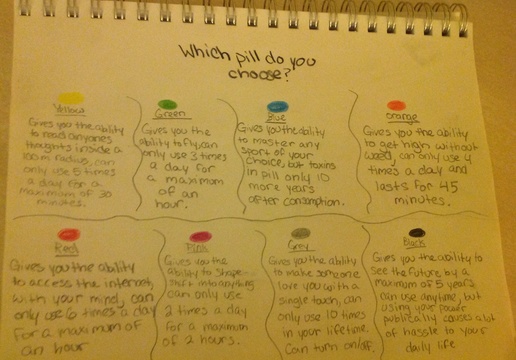 Which pill do you
choose?
Yellow
Gives you the ability
to read anyones
thoughts inside a
100m radius, can
only use 5 times
a day for a
maximum of 30
minutes.
Green
Gives you the
ability to fly, can
only use 3 times
a day for
a maximum
of an
hour.
Blue
Gives you the ability
to master any
sport of your
choice, but toxins
in pill only 10
more years
after consumption.
orange
Gives you the ability
to get high without
weed, can only use 4
times a day and
lasts for 45
minutes.
Red
Gives you the ability
to access the internet
with your mind, can
only use 6 times a day
for a maximum of
an hour
Pink
Gives you the
ability to shape-
shift into anything
can only use
2 times a day
for a maximum
of 2 hours.
Grey
Gives you the ability
to make someone
love you with a
single touch, can
only use 10 times
in your lifetime.
Can turn on/off.
Black
Gives you the ability to
see the future by a
maximum of 5 years
can use anytime, but
using your power
publically causes a lot
of hassle to your
daily life